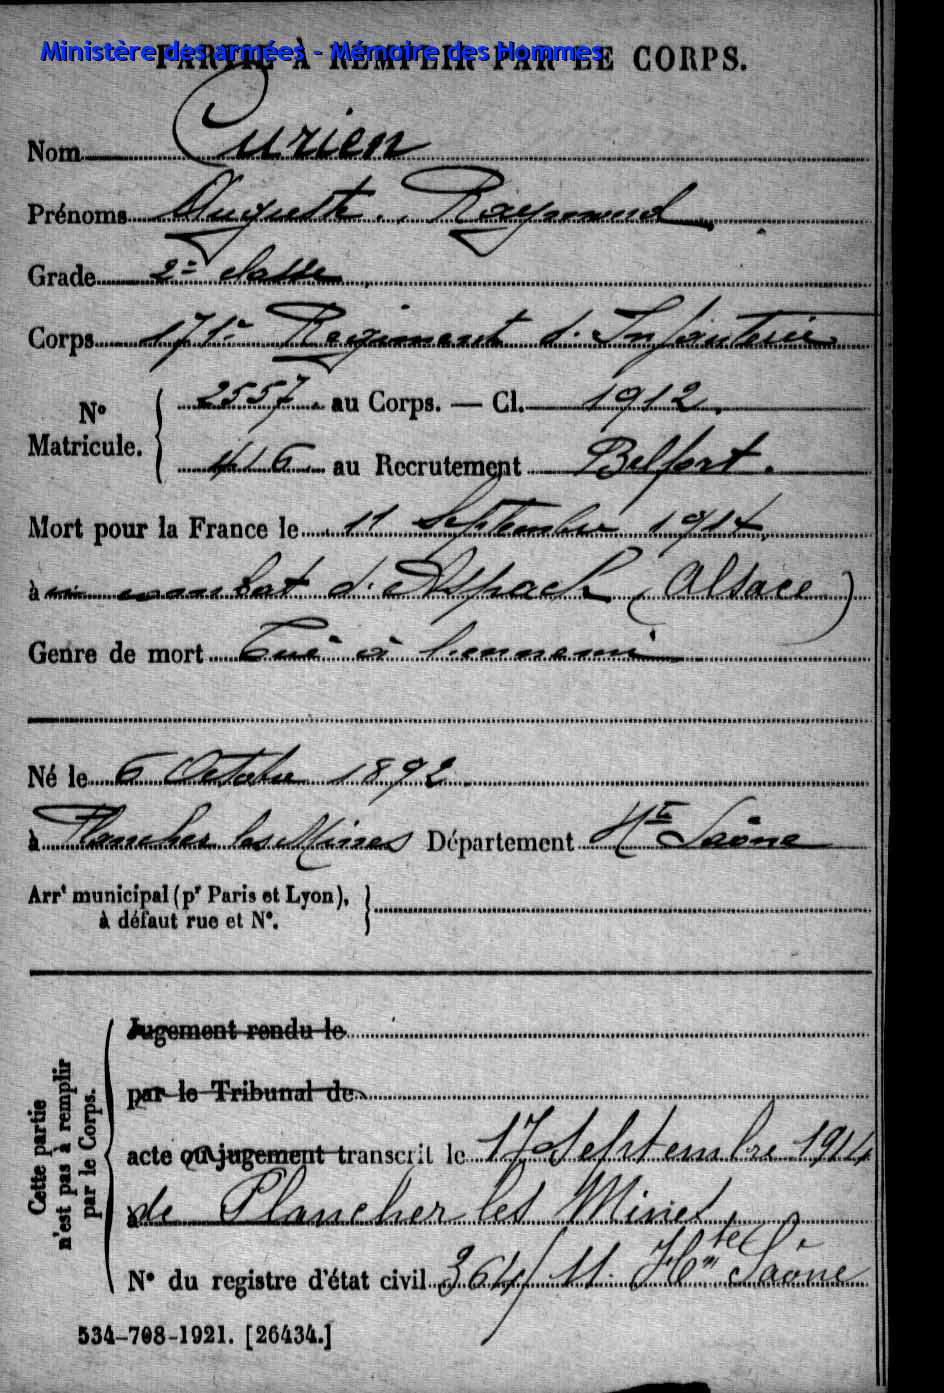 Ministère des armées - Mémoire des Hommes
PARTIE À REMPLIR PAR LE CORPS.
Nom Curien
Prénoms Auguste Raymond
Grade 2e classe
Corps 171e Régiment d'Infanterie
N° Matricule. 2557 au Corps. — Cl. 1912.
416 au Recrutement Belfort.
Mort pour la France le 11 Septembre 1914.
à combat d'Aspach (Alsace)
Genre de mort Tué à l'ennemi
Né le 6 Octobre 1892
à Plancher les Mines Département Hte Saône
Arrt municipal (pr Paris et Lyon),
à défaut rue et N°.
Cette partie n'est pas à remplir par le Corps.
Jugement rendu le
par le Tribunal de
acte ou jugement transcrit le 17 Septembre 1914
à de Plancher les Mines
N° du registre d'état civil Hte Saône
534-708-1921. [26434.]